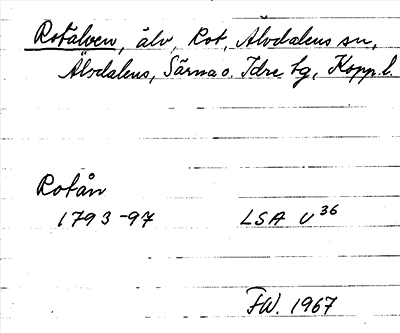 Rotälven, älv, Rot, Älvdalens sn,
Älvdalens, Särna o. Idre tg, Kopp. l.
Rotån
1793-97 LSA U36
FW. 1967